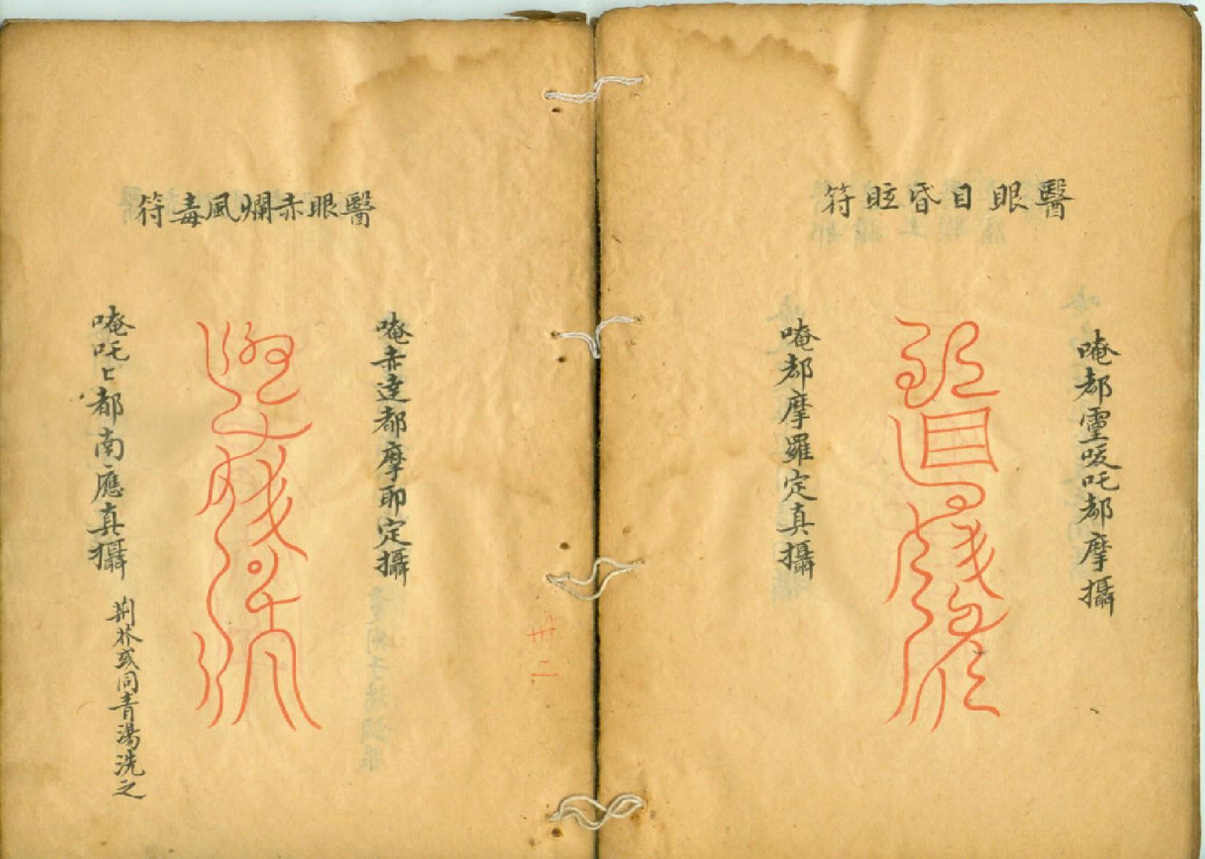 醫眼目昏眩符
唵都靈㕵吒都摩攝
唵都摩羅定真攝
醫眼赤爛風毒符
唵赤達都摩耶定攝
唵吒上都南應真攝
荆芥或同青湯洗之
卅二